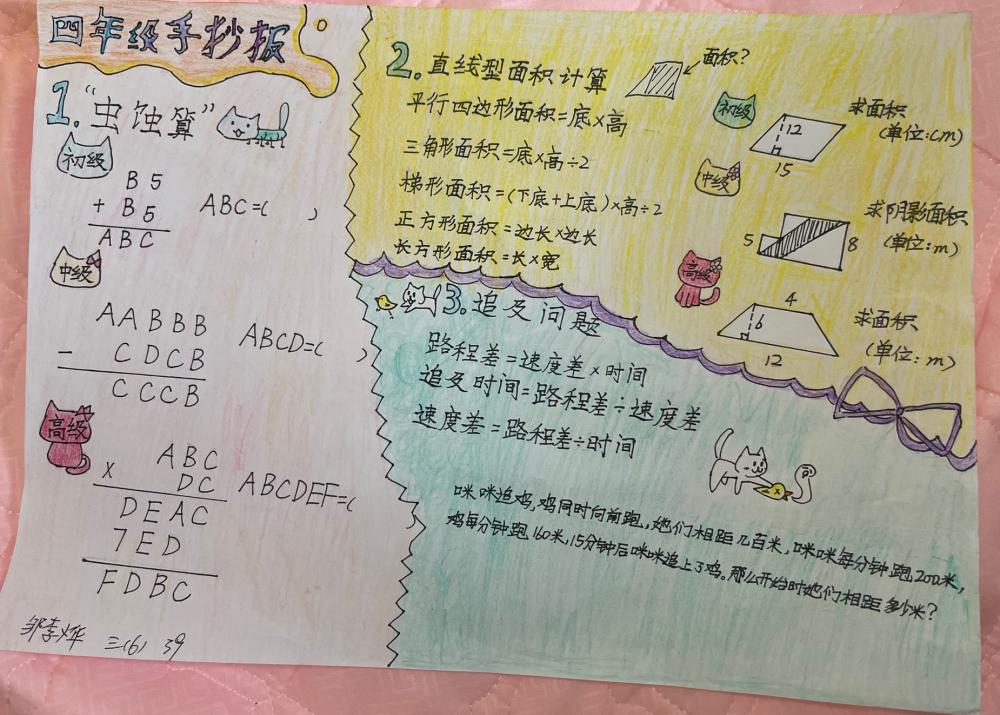 四年级手抄报
1.“虫蚀算”
初级
B5
+ B5
ABC
ABC=( )
中级
AABBB
- CDCB
CCCB
ABCD=( )
高级
ABC
x DC
DEAC
7ED
FDBC
ABCDEF=(
邹李烨 三(6) 39
2.直线型面积计算
面积?
平行四边形面积=底×高
三角形面积=底×高÷2
梯形面积=(下底+上底)×高÷2
正方形面积=边长×边长
长方形面积=长×宽
初级
12
15
求面积
(单位:cm)
中级
5
8
求阴影面积
(单位:m)
高级
4
6
12
求面积
(单位:m)
3.追及问题
路程差=速度差×时间
追及时间=路程差÷速度差
速度差=路程差÷时间
咪咪追鸡,鸡同时向前跑,她们相距几百米,咪咪每分钟跑200米,
鸡每分钟跑160米,15分钟后咪咪追上了鸡。那么开始时她们相距多少米?